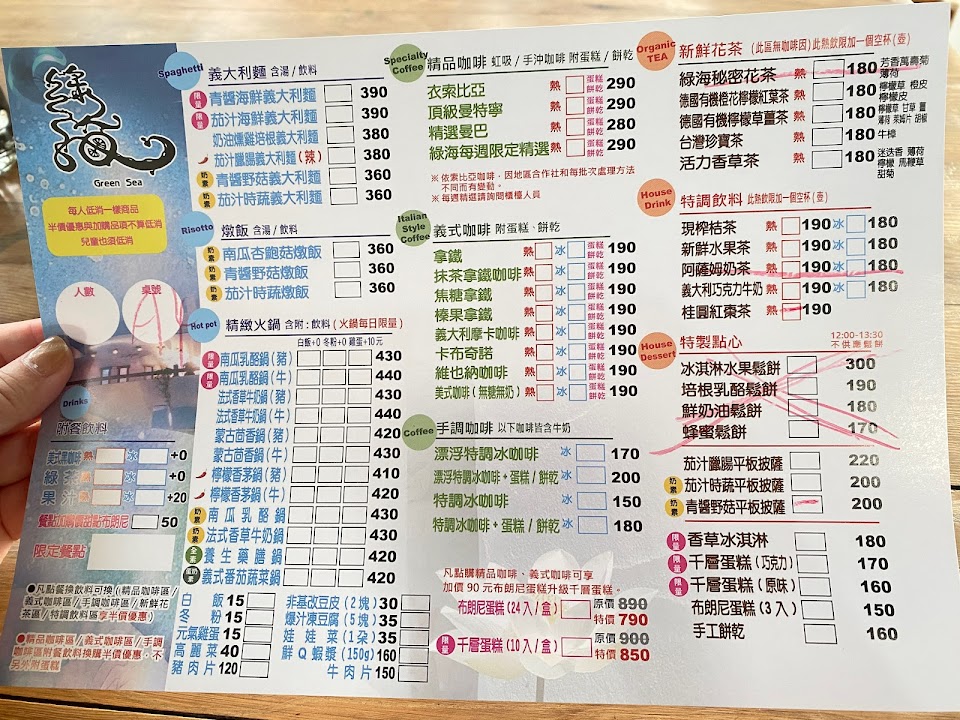 綠海
Green Sea
每人低消一樣商品
半價優惠與加購品項不算低消
兒童也須低消
人數
桌號
A4
Drinks
附餐飲料
美式黑咖啡 熱 冰 +0
綠茶 熱 冰 +0
果汁 +20
50
限定餐點
●凡點餐換飲料可換(精品咖啡區/
義式咖啡區/手調咖啡區/新鮮花
茶區/特調飲料區享半價優惠)
●精品咖啡區/義式咖啡區/手調
咖啡區附餐飲料換購半價優惠,不
另外附蛋糕
Spaghetti
義大利麵 含湯/飲料
限量 青醬海鮮義大利麵 390
限量 茄汁海鮮義大利麵 390
奶油燻雞培根義大利麵 380
茄汁臘腸義大利麵(辣) 380
奶素 青醬野菇義大利麵 360
奶素 茄汁時蔬義大利麵 360
Risotto
燉飯 含湯/飲料
奶素 南瓜杏鮑菇燉飯 360
奶素 青醬野菇燉飯 360
奶素 茄汁時蔬燉飯 360
Hot pot
精緻火鍋 含附:飲料 (火鍋每日限量)
白飯+0 冬粉+0 雞蛋+10元
限量 南瓜乳酪鍋(豬) 430
限量 南瓜乳酪鍋(牛) 440
法式香草牛奶鍋(豬) 430
法式香草牛奶鍋(牛) 440
蒙古茴香鍋(豬) 420
蒙古茴香鍋(牛) 430
檸檬香茅鍋(豬) 410
檸檬香茅鍋(牛) 420
奶素 南瓜乳酪鍋 430
奶素 法式香草牛奶鍋 430
全素 養生藥膳鍋 420
蛋奶素 義式番茄蔬菜鍋 420
白飯 15
冬粉 15
元氣雞蛋 15
高麗菜 40
豬肉片 120
非基改豆皮(2塊) 30
爆汁凍豆腐(5塊) 35
娃娃菜(1朵) 35
鮮Q蝦漿(150g) 160
牛肉片 150
Specialty
Coffee
精品咖啡 虹吸/手沖咖啡 附蛋糕/餅乾
衣索比亞 熱 蛋糕 餅乾 290
頂級曼特寧 熱 蛋糕 餅乾 290
精選曼巴 熱 蛋糕 餅乾 280
綠海每週限定精選 熱 蛋糕 餅乾 290
※依索比亞咖啡,因地區合作社和每批次處理方法
不同而有變動。
※每週精選請詢問櫃檯人員
Italian
Style
Coffee
義式咖啡 附蛋糕、餅乾
拿鐵 熱 冰 蛋糕 餅乾 190
抹茶拿鐵咖啡 熱 冰 蛋糕 餅乾 190
焦糖拿鐵 熱 冰 蛋糕 餅乾 190
榛果拿鐵 熱 冰 蛋糕 餅乾 190
義大利摩卡咖啡 熱 冰 蛋糕 餅乾 190
卡布奇諾 熱 冰 蛋糕 餅乾 190
維也納咖啡 熱 冰 蛋糕 餅乾 190
美式咖啡(無糖無奶) 熱 冰 蛋糕 餅乾 190
Coffee
手調咖啡 以下咖啡皆含牛奶
漂浮特調冰咖啡 冰 170
漂浮特調冰咖啡+蛋糕/餅乾 冰 200
特調冰咖啡 冰 150
特調冰咖啡+蛋糕/餅乾 冰 180
凡點購精品咖啡、義式咖啡可享
加價 90 元布朗尼蛋糕升級千層蛋糕。
布朗尼蛋糕(24入/盒) 原價 890
特價 790
限量 千層蛋糕(10入/盒) 原價 900
特價 850
Organic
TEA
新鮮花茶 (此區無咖啡因)此熱飲限加一個空杯(壺)
綠海秘密花茶 熱 180 芳香萬壽菊 薄荷
德國有機橙花檸檬紅葉茶 熱 180 檸檬草 橙皮 檸檬皮
德國有機檸檬草薑茶 熱 180 檸檬草 甘草 薑 薄荷 萊姆片 胡椒
台灣珍寶茶 熱 180 牛樟
活力香草茶 熱 180 迷迭香 薄荷 檸檬 馬鞭草 甜菊
House
Drink
特調飲料 此熱飲限加一個空杯(壺)
現榨桔茶 熱 190 冰 180
新鮮水果茶 熱 190 冰 180
阿薩姆奶茶 熱 190 冰 180
義大利巧克力牛奶 熱 190 冰 180
桂圓紅棗茶 熱 190
House
Dessert
特製點心 12:00-13:30
不供應鬆餅
冰淇淋水果鬆餅 300
培根乳酪鬆餅 190
鮮奶油鬆餅 180
蜂蜜鬆餅 170
茄汁臘腸平板披薩 220
奶素 茄汁時蔬平板披薩 200
奶素 青醬野菇平板披薩 200
限量 香草冰淇淋 180
限量 千層蛋糕(巧克力) 170
限量 千層蛋糕(原味) 160
布朗尼蛋糕(3入) 150
手工餅乾 160